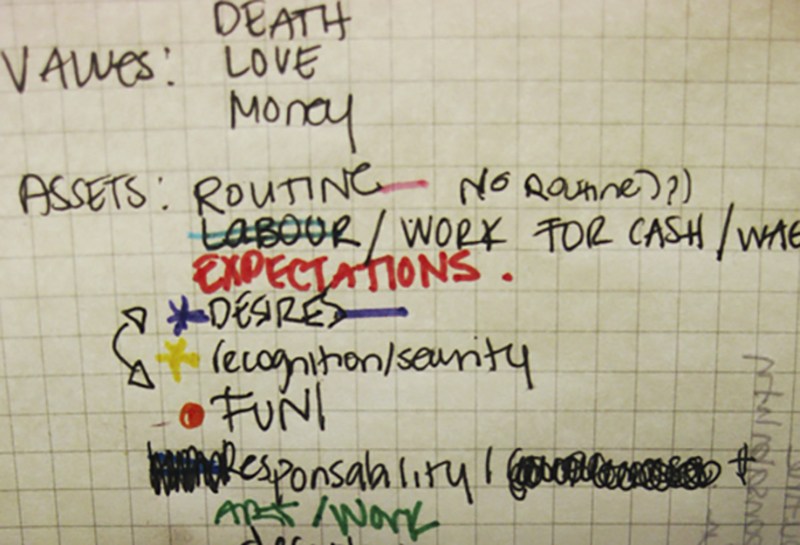 DEATH
VALUES: LOVE
Money
ASSETS: ROUTINE — NO ROUTINE??)
LABOUR / WORK FOR CASH / WAG
EXPECTATIONS.
* DESIRES —
* recognition/security
• FUN!
Responsability / +
ART / WORK